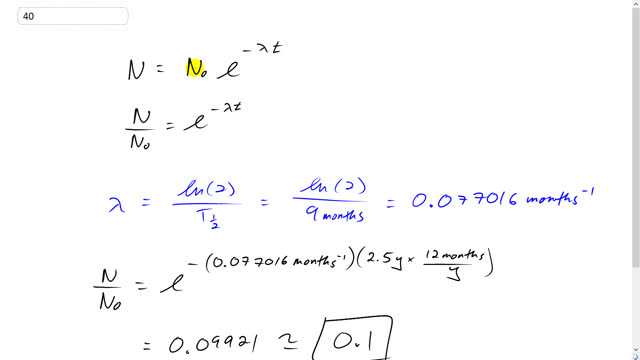 40
N = N₀ e^(-λt)
N/N₀ = e^(-λt)
λ = ln(2)/T_(1/2) = ln(2)/9 months = 0.077016 months⁻¹
N/N₀ = e^(-(0.077016 months⁻¹)(2.5y × 12 months/y))
= 0.09921 ≃ 0.1